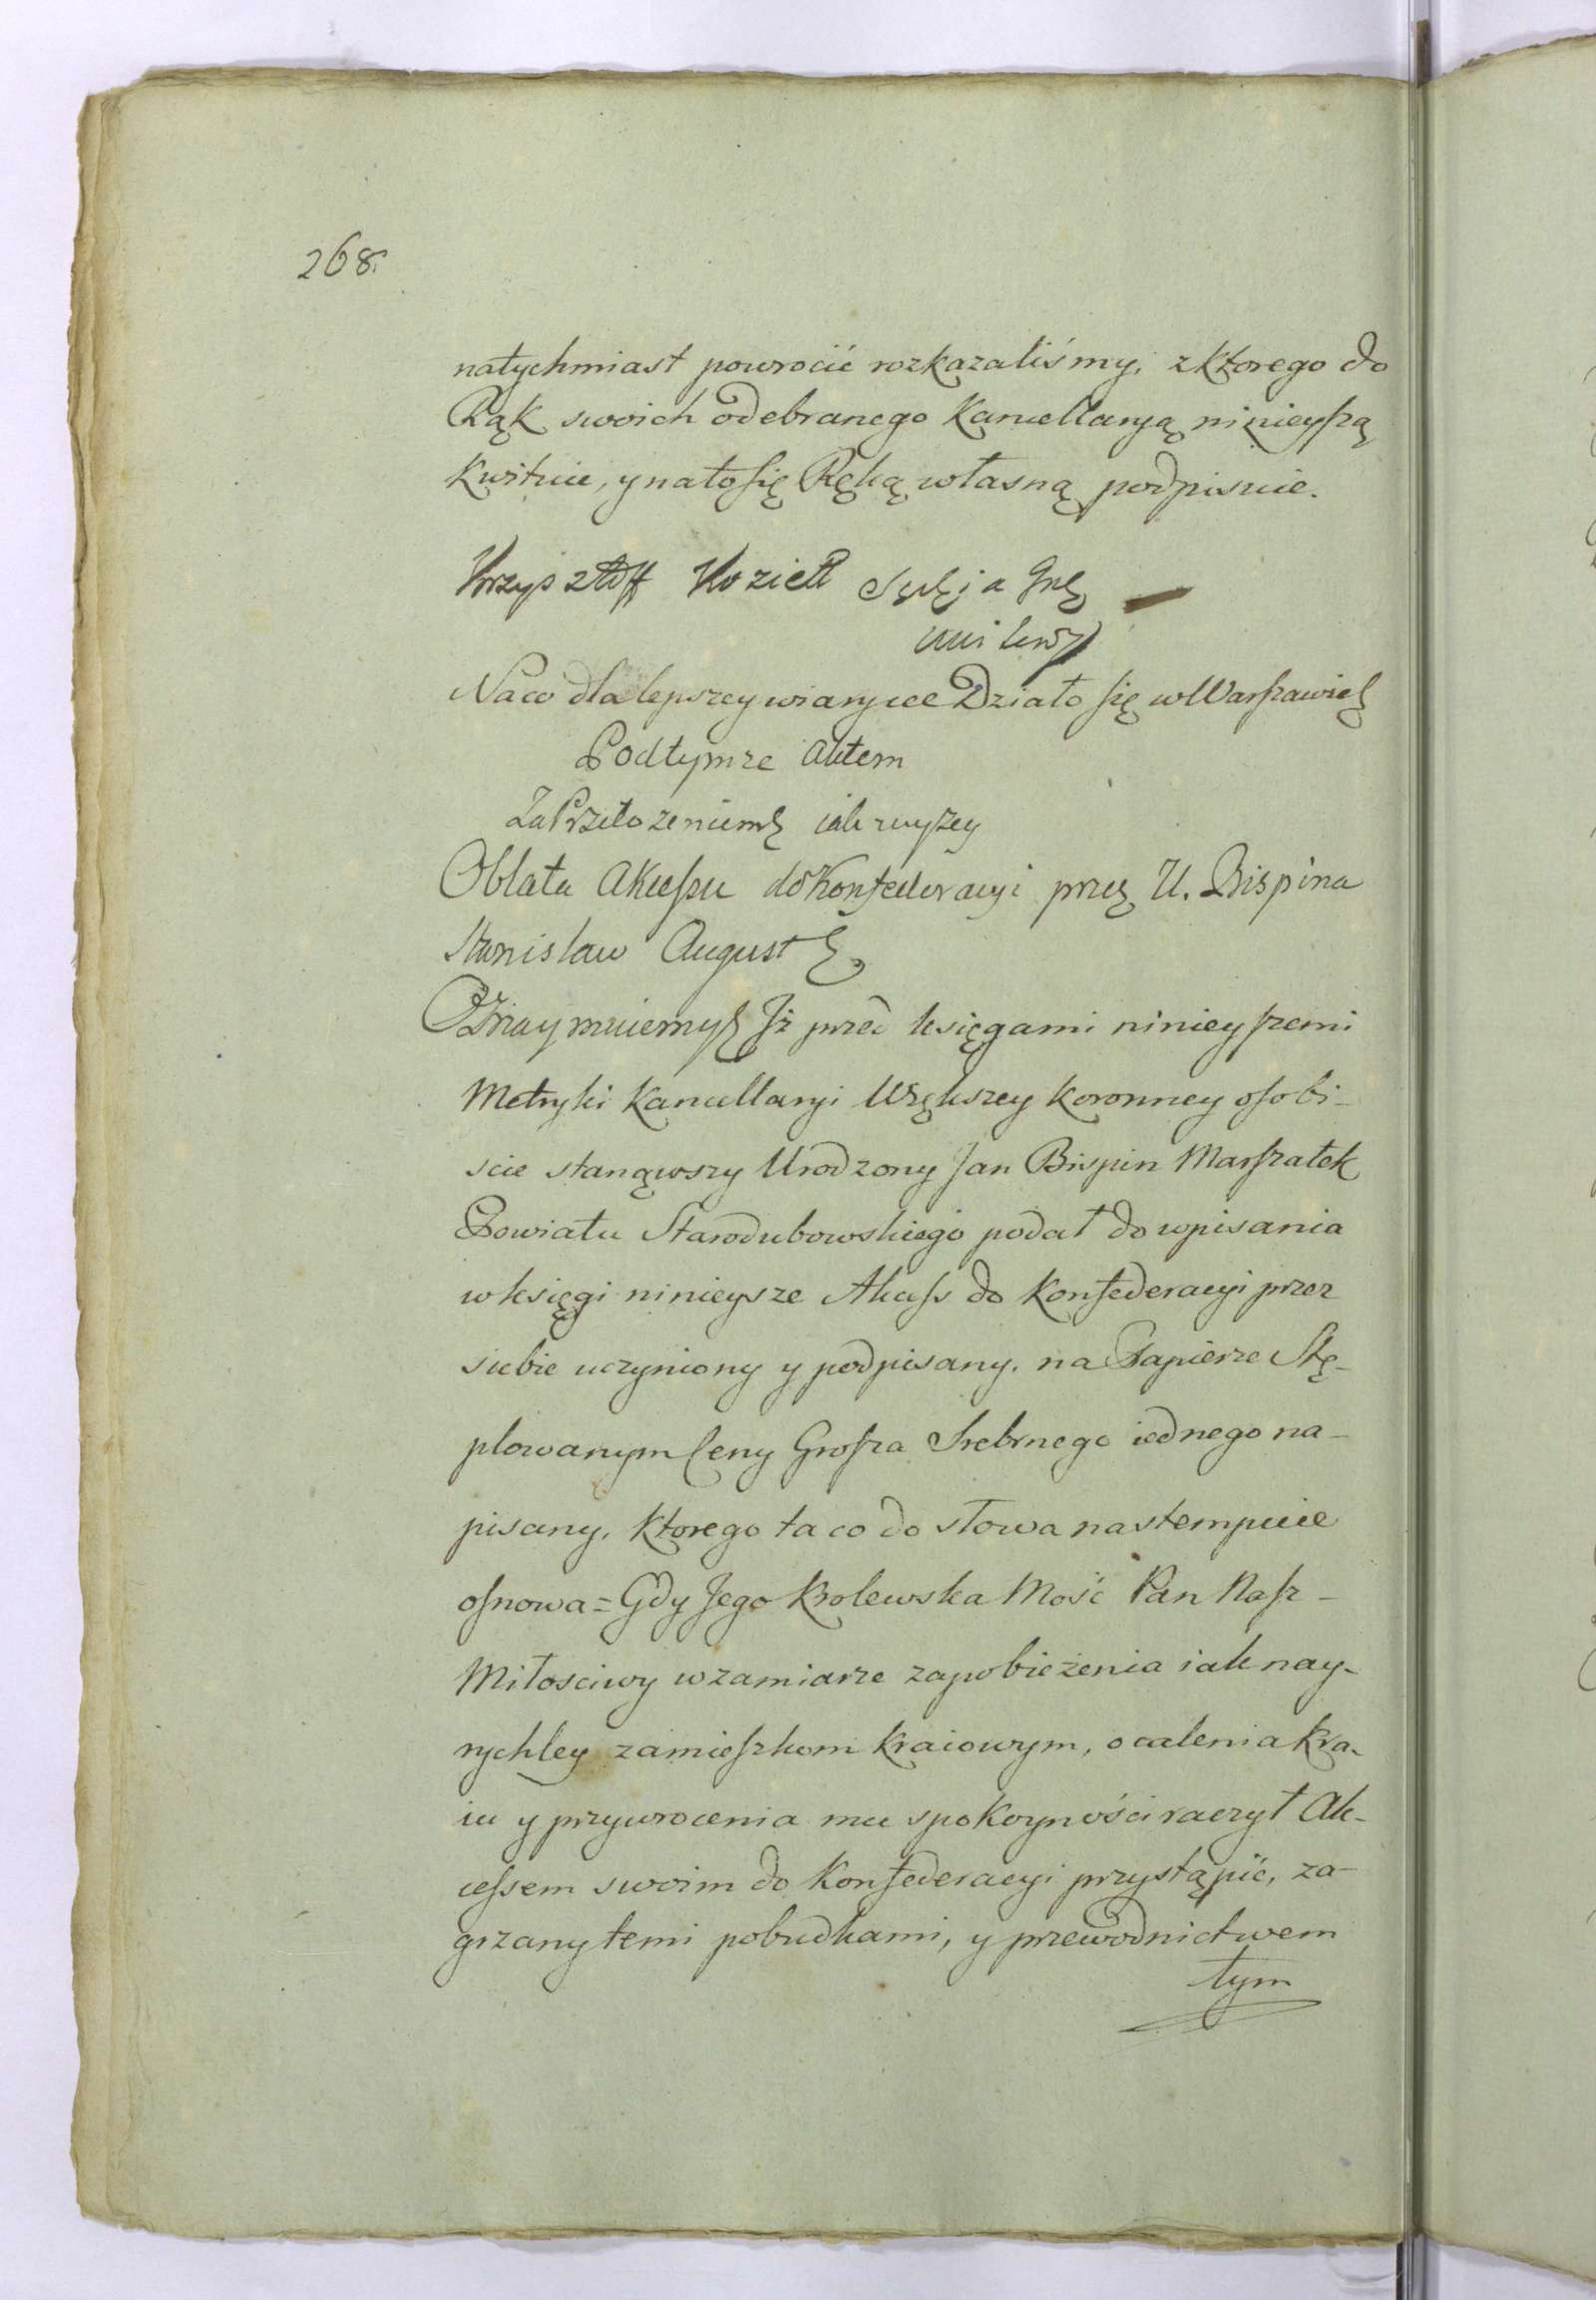 268.
natychmiast powrocić rozkazaliśmy, z ktorego do
Rąk swoich odebranego Kancellaryą ninieyszą
Kwituie, y nato się Ręką własną podpisuie.
Krzysztoff Koziełł Sędzia
Na co dla lepszey wiary Działo się w Warszawie
Podtymże Aktem
Za Przełożeniem iak wyżey
Oblata Akcessu do Konfederacyi przez U. Bispina
Stanislaw August
Oznaymuiemy Iż przed księgami ninieyszemi
Metryki Kancellaryi Większey Koronney osobi-
scie stanąwszy Urodzony Jan Bispin Marszałek
Powiatu Starodubowskiego podał do wpisania
w księgi ninieysze Akcess do Konfederacyi przez
siebie uczyniony y podpisany. na Papierze Stę-
plowanym Ceny Grosza Srebrnego iednego na-
pisany, Ktorego ta co do słowa nastempuie
osnowa = Gdy Jego Krolewska Mość Pan Nasz -
Miłosciwy w zamiarze zapobieżenia iak nay-
rychley zamieszkom kraiowym, ocalenia kra-
iu y przywrocenia mu spokoyności raczył Ak-
cessem swoim do Konfederacyi przystąpić, za-
grzany temi pobudkami, y przewodnictwem
tym